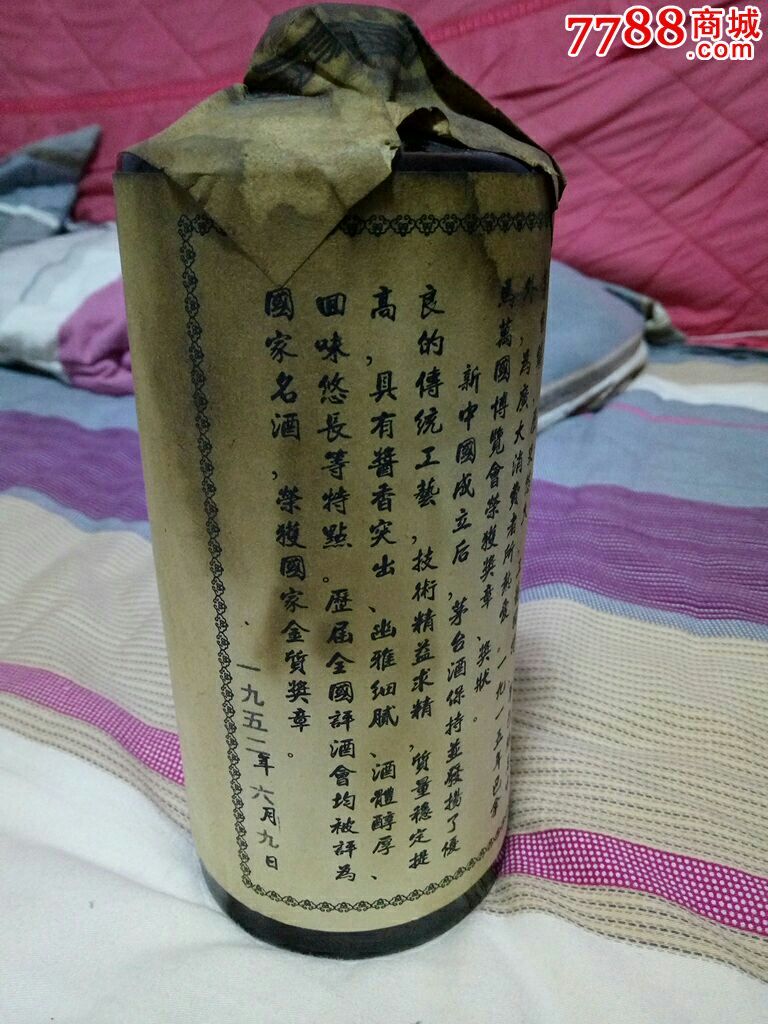 7788商城
.com
外，爲廣大消費者所
。一九一五年巴拿
馬萬國博覽會榮獲獎章、獎狀。
新中國成立后，茅台酒保持並發揚了優
良的傳统工藝，技術精益求精，質量穩定提
高，具有醬香突出、幽雅细膩、酒體醇厚、
回味悠長等特點。歷届全國評酒會均被評為
國家名酒，榮獲國家金質獎章。
一九五二年六月九日